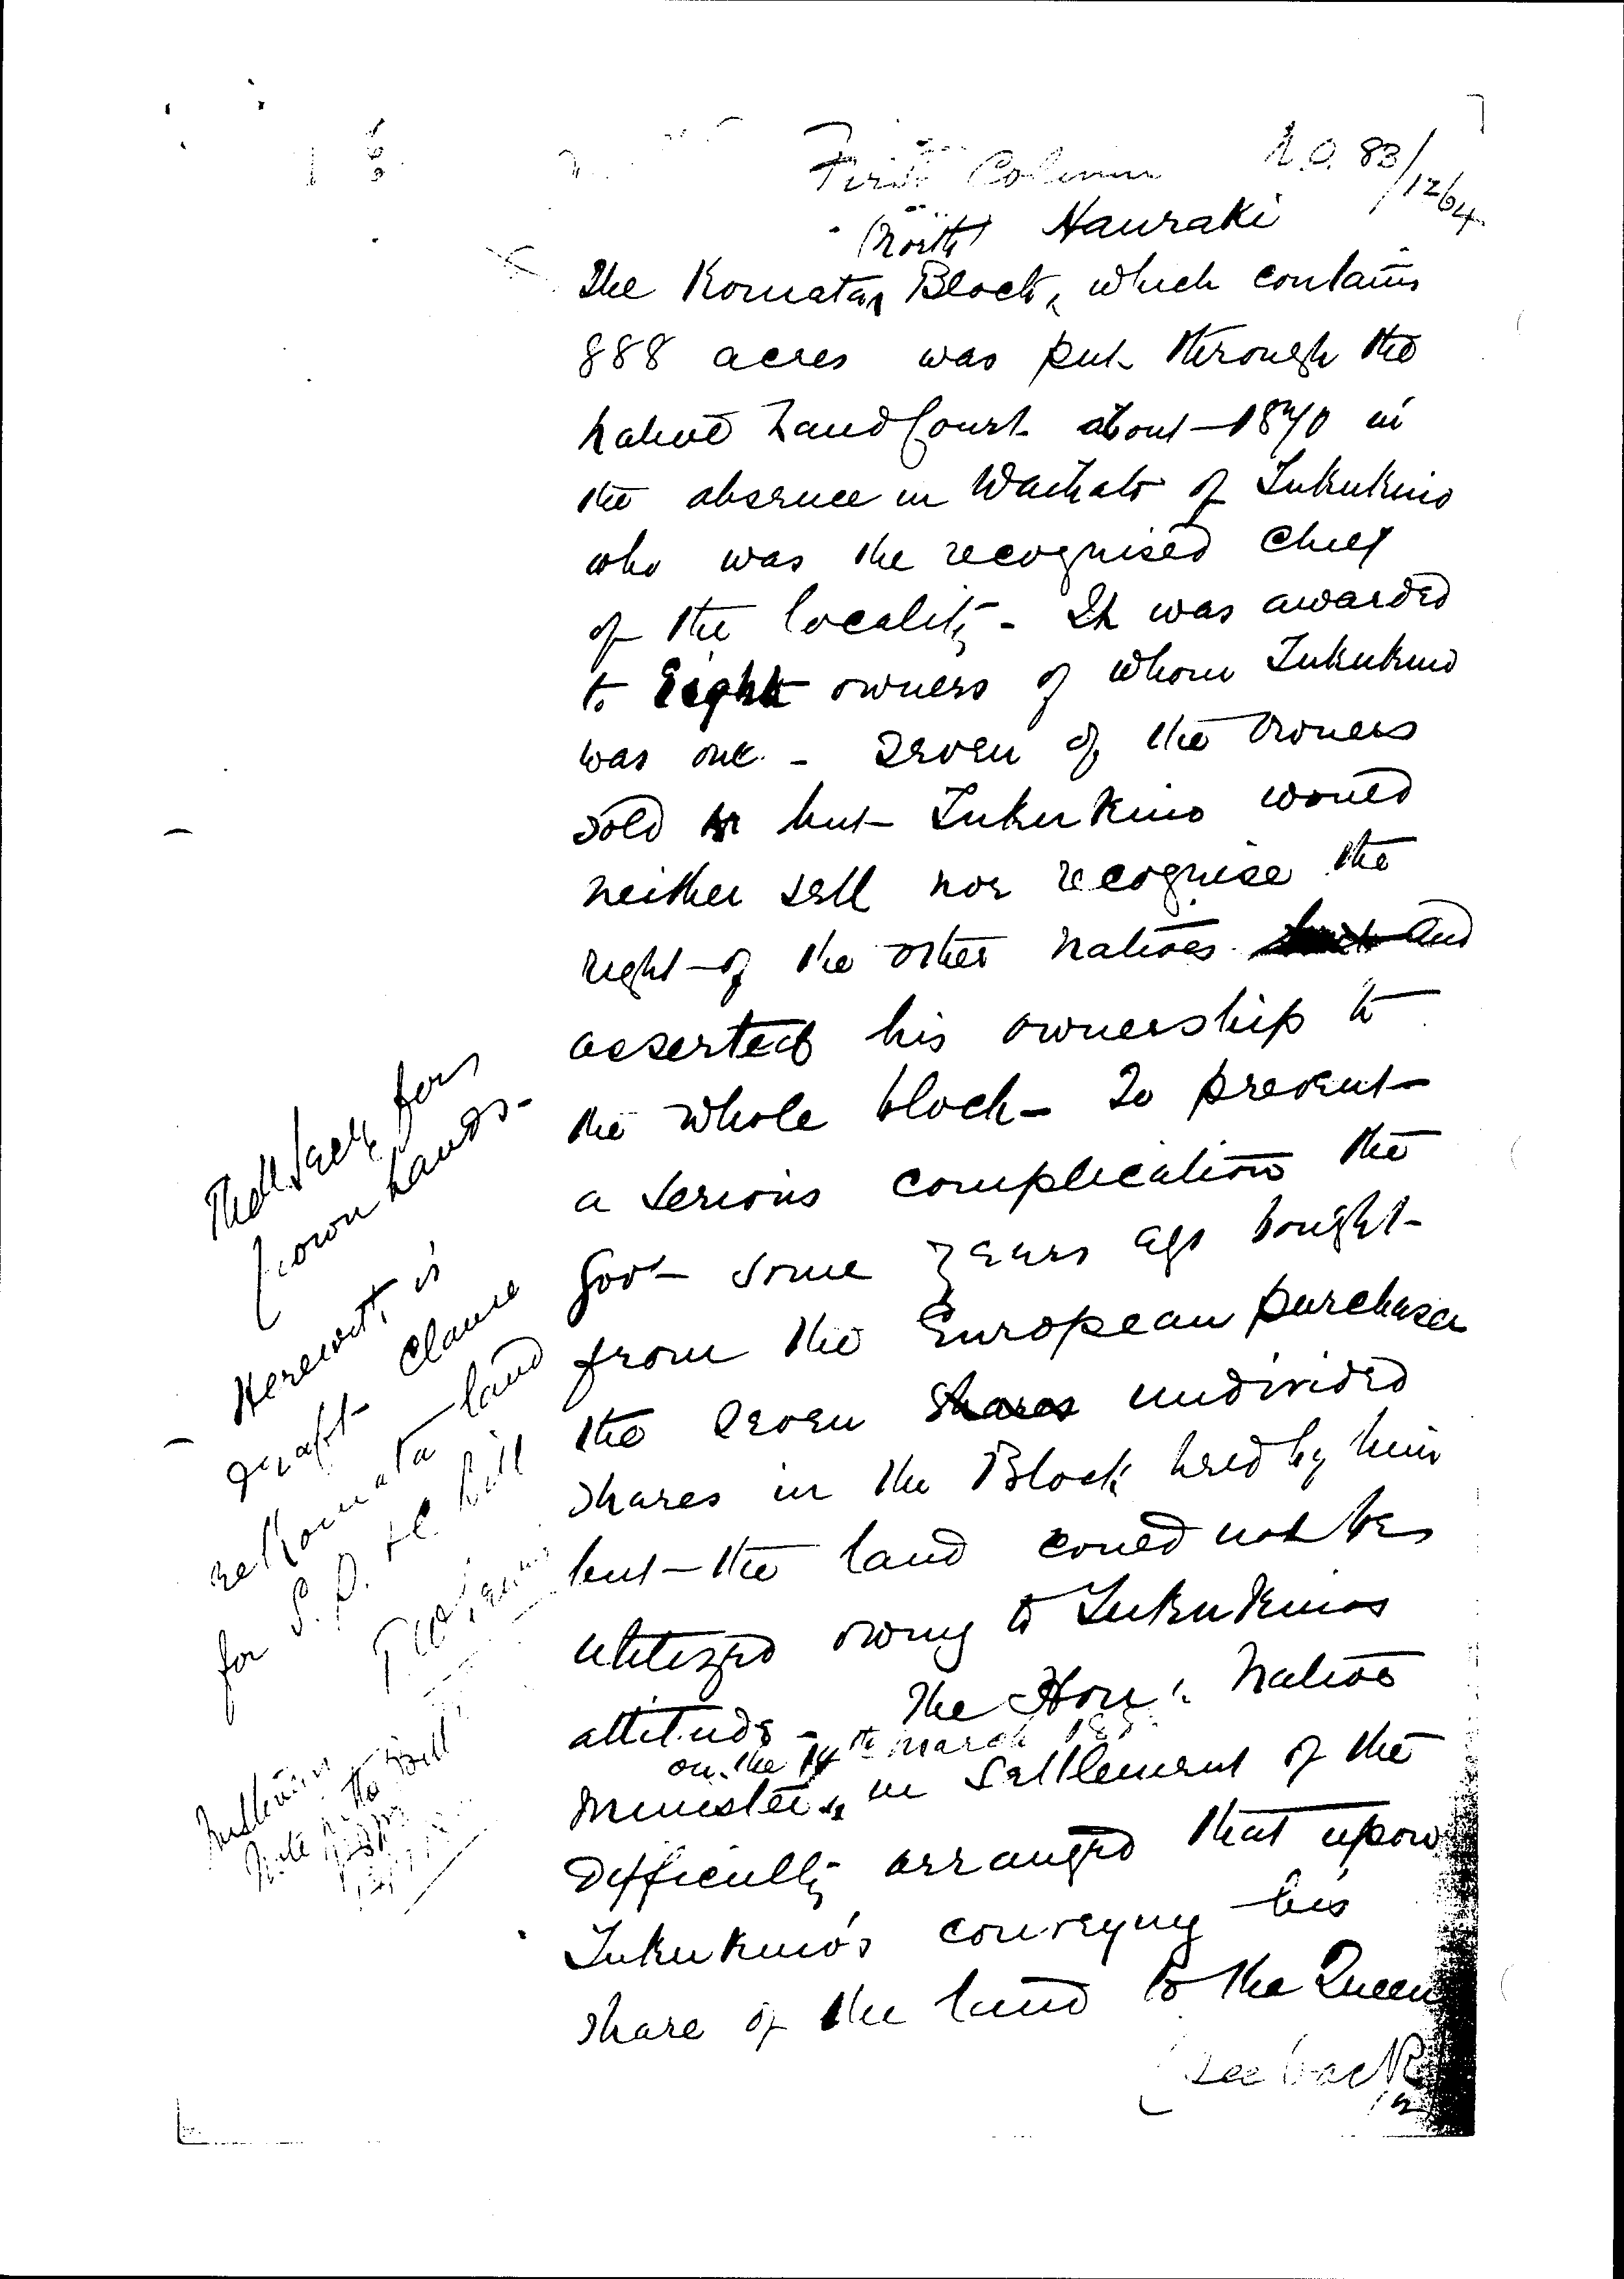 First Column
N.O. 83/1264
(North) Hauraki
The Komata Block, which contains
888 acres was put through the
Native Land Court about 1870 in
the absence in Waikato of Tukukino
who was the recognised Chief
of the locality - It was awarded
to Eight owners of whom Tukukino
was one - Seven of the owners
sold but Tukukino would
neither sell nor recognise the
right of the other natives and
asserted his ownership to
the whole block - To prevent
a serious complication the
Govt some years ago bought
from the European purchaser
the seven shares undivided
shares in the Block held by him
but the land could not be
utilized owing to Tukukinos
attitude - The Hon: Native
on the 14th March
Minister, in settlement of the
difficulty arranged that upon
Tukukino's conveying his
share of the land to the Queen
(See back
The U Secy for
Crown Lands -
Herewith is
draft clause
re Komata land
for S.P. &c bill
T W Lewis
Note to Bill